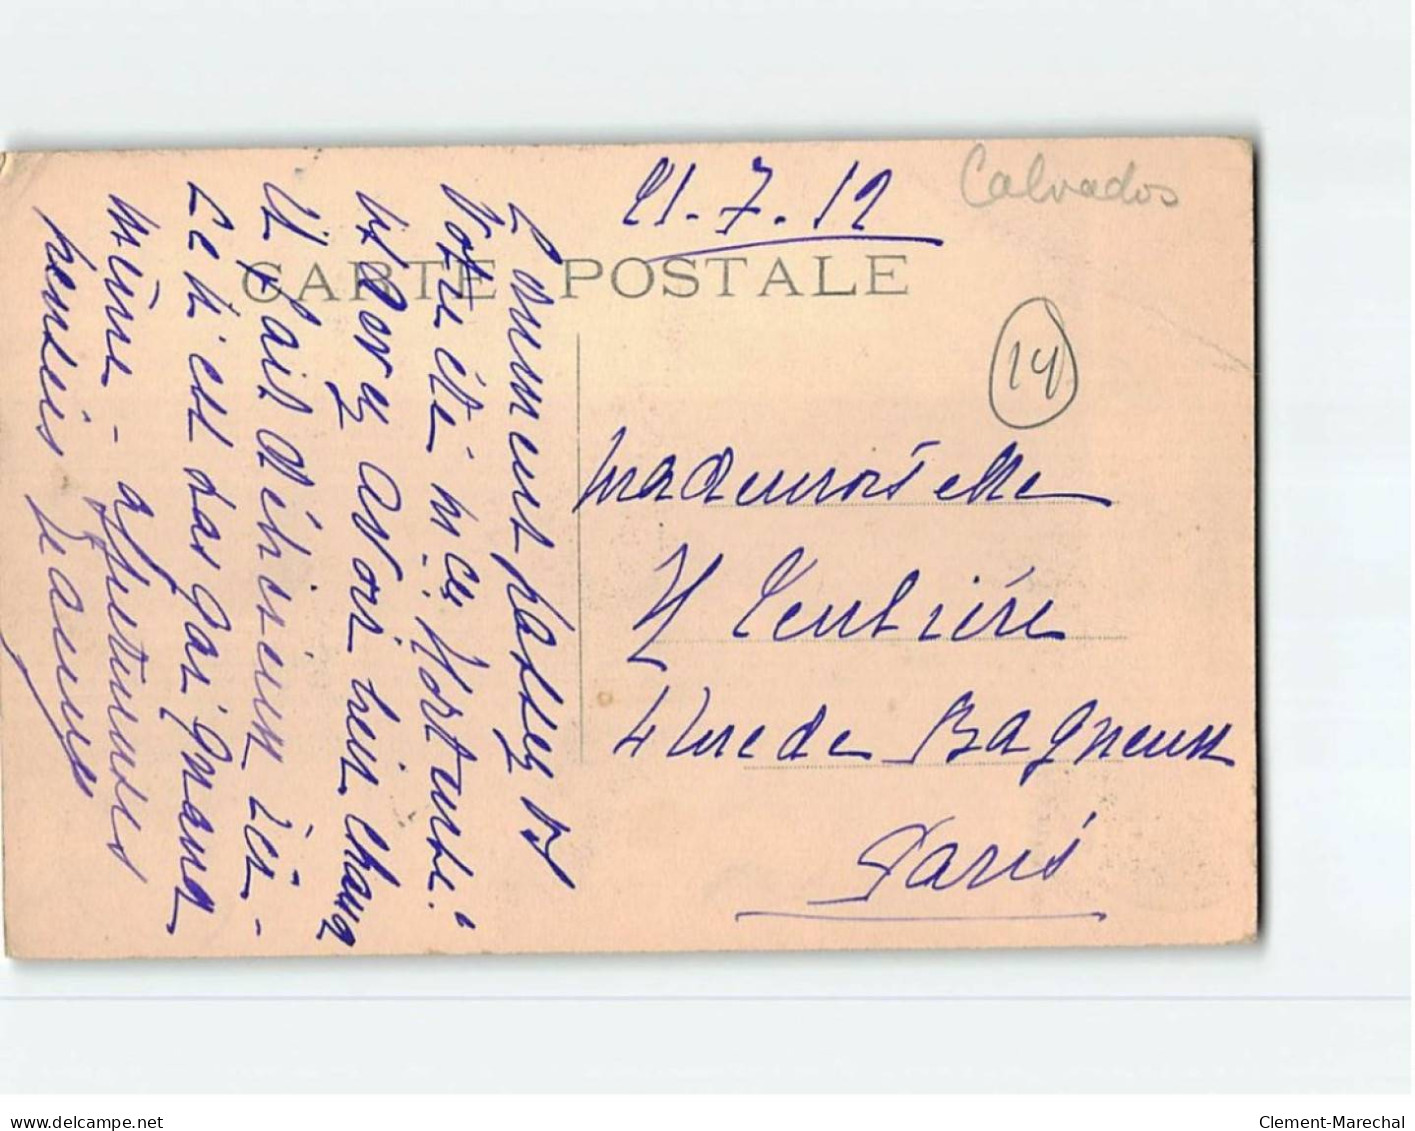 21.7.12
Calvados
CARTE POSTALE
14
Comment passez vs
Votre été ma
Vs devez avoir bien chaud
Il fait délicieux ici -
Ce n'est pas gai
même - affectueuses
pensées
Mademoiselle
H
4 rue de Bagneux
Paris
delcampe.net
Clement-Marechal